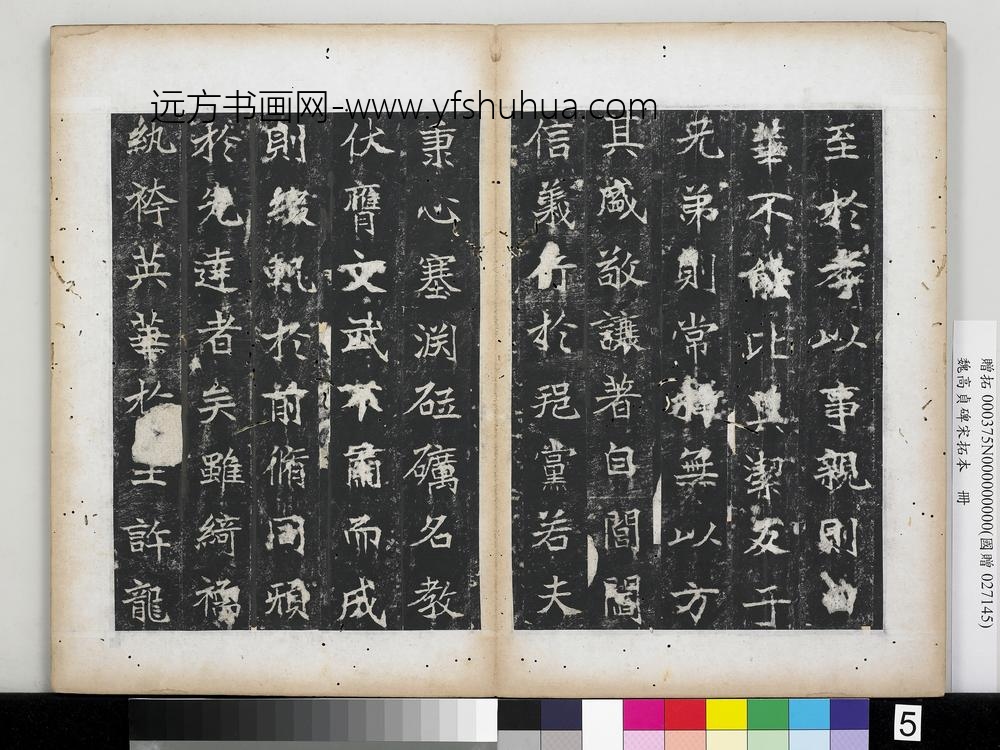 远方书画网-www.yfshuhua.com
至於孝以事親則
華不能比其潔友于
兄弟則常棣無以方
其盛敬讓著自閨閫
信義行於邑黨若夫
秉心塞渕砥礪名教
伏膺文武不肅而成
則綴軌於前脩同頍
於先達者矣雖綺襦
紈袴英華於王許龍
贈拓 000375N000000000(國贈 027145)
魏高貞碑宋拓本 冊
5